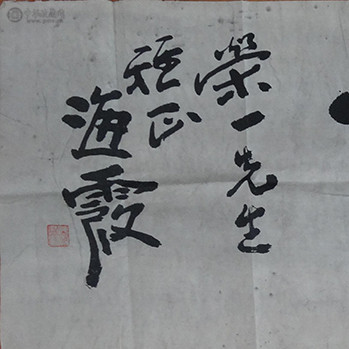 榮一先生
雅正
海霞